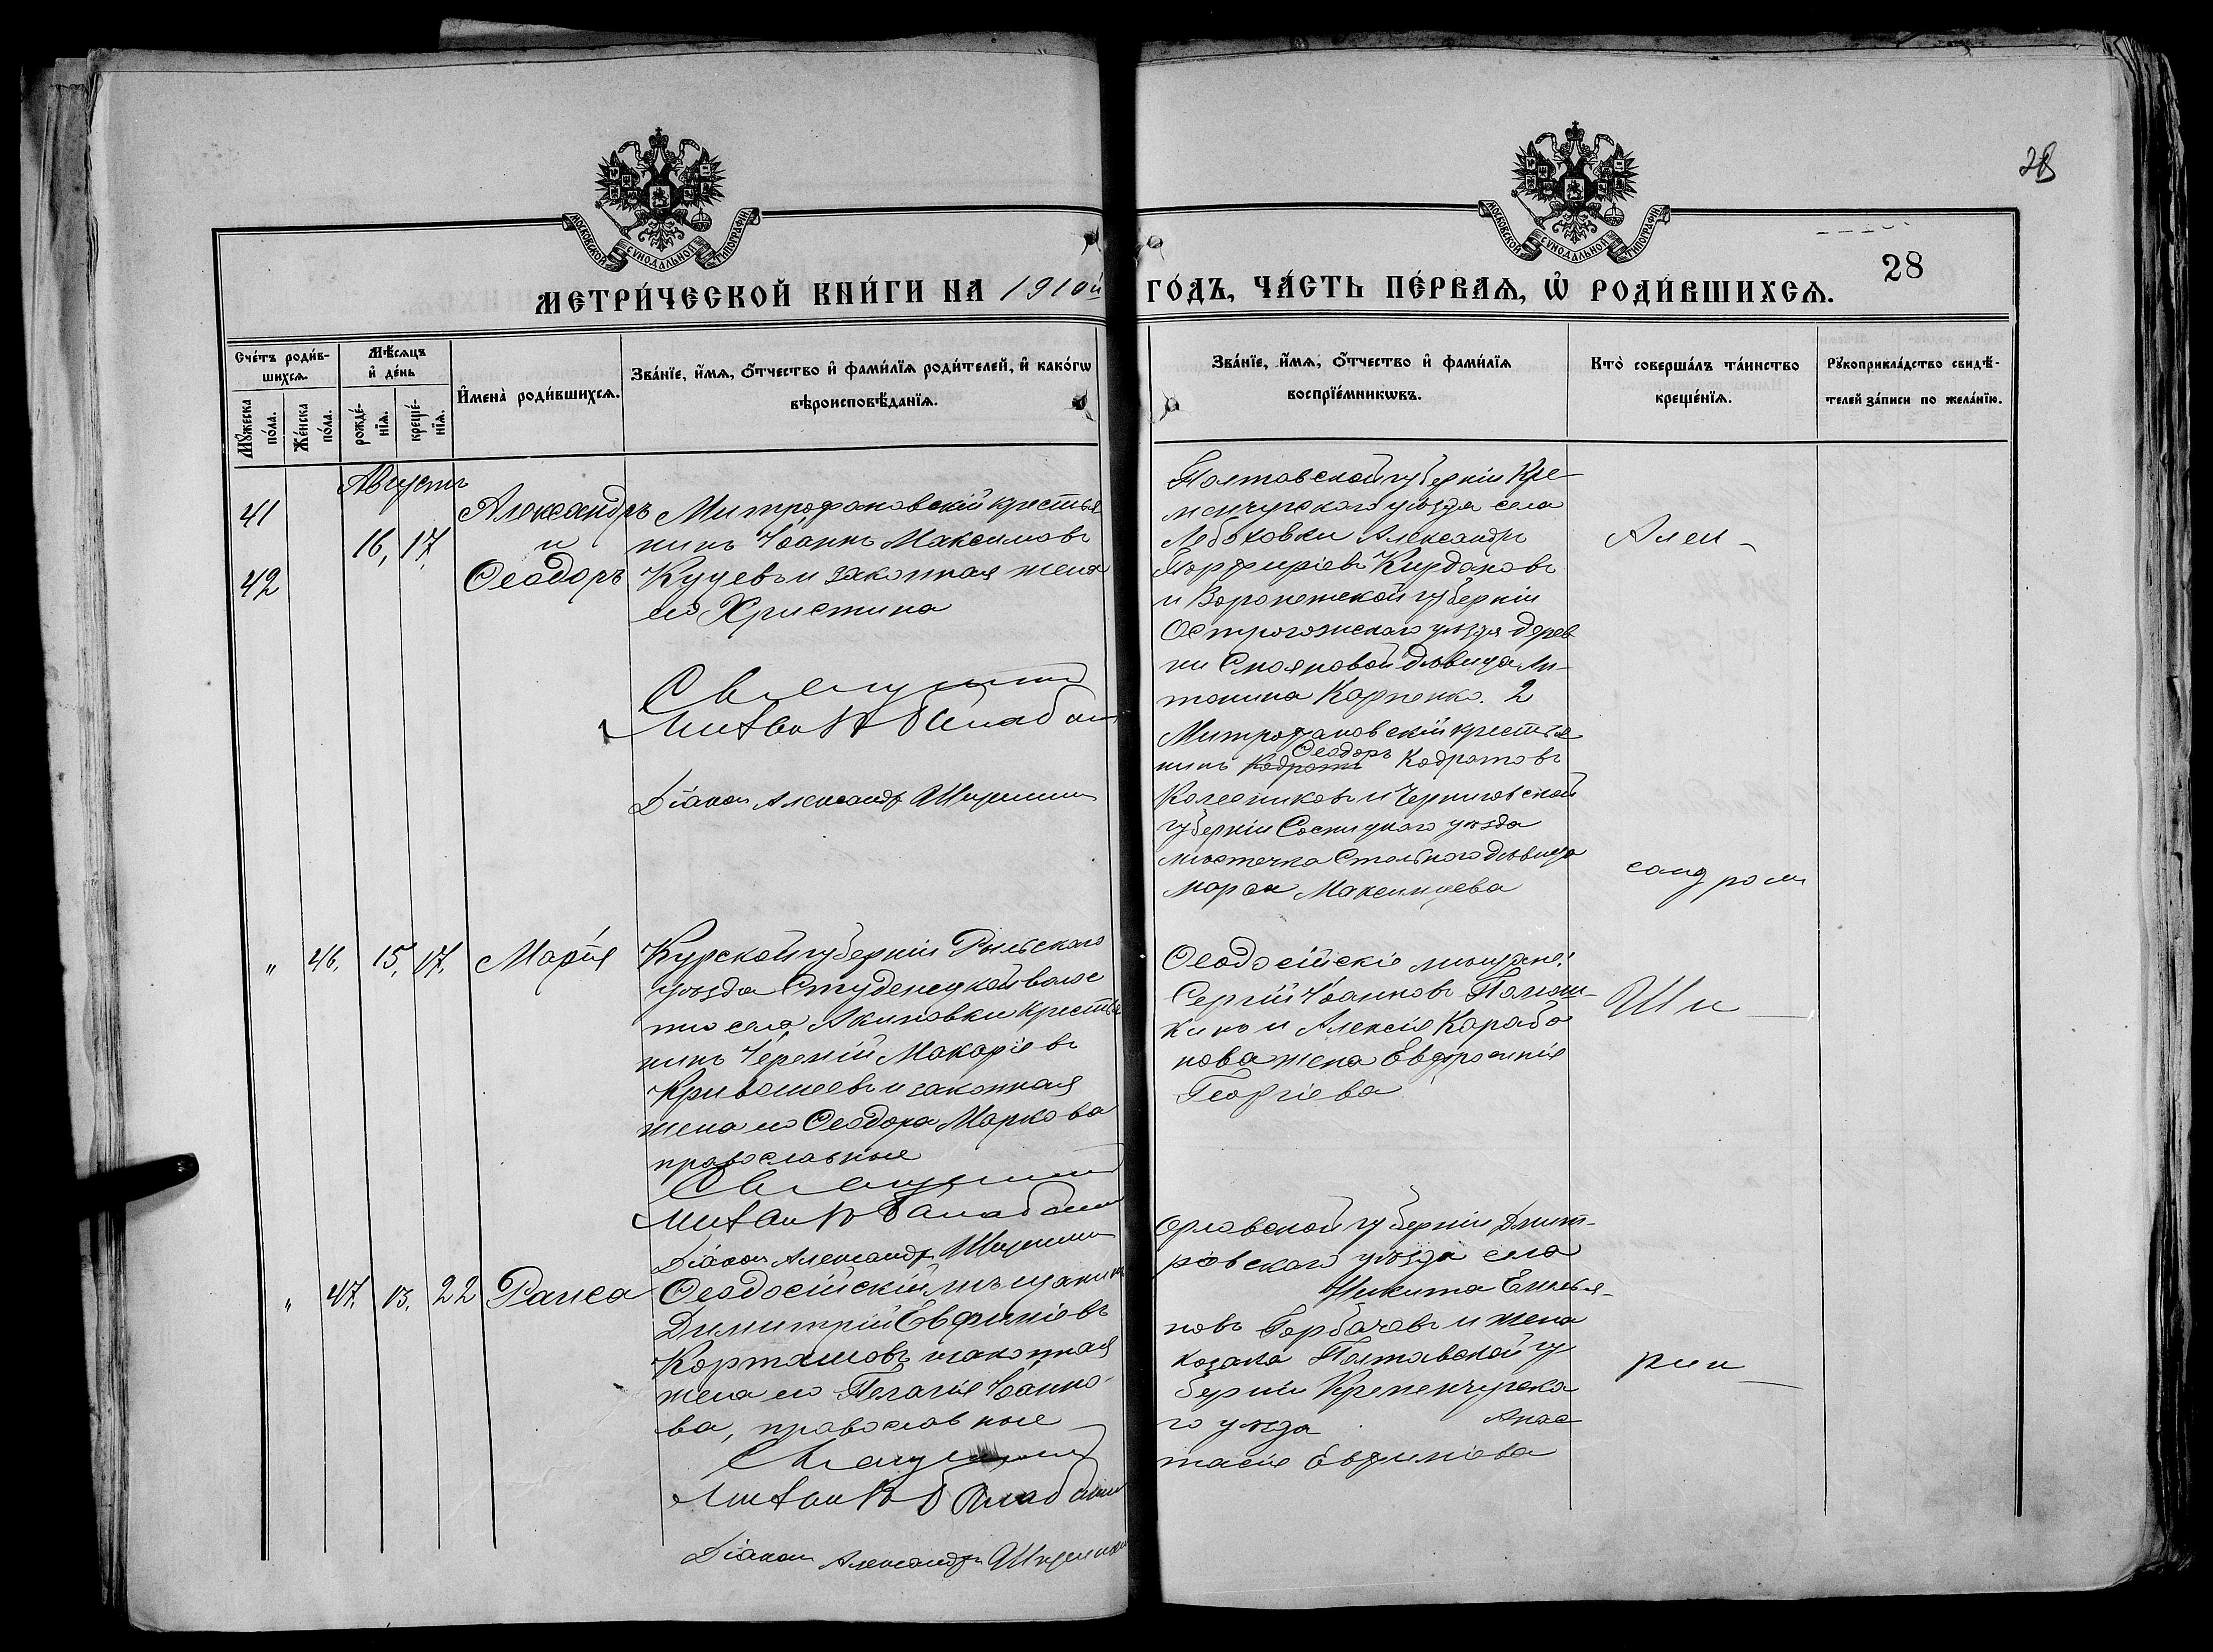 28
МОСКОВСКОЙ СѴНОДАЛЬНОЙ ТИПОГРАФІИ
МОСКОВСКОЙ СѴНОДАЛЬНОЙ ТИПОГРАФІИ
28
МЕТРИ́ЧЕСКОЙ КНИ́ГИ НА 1910й ГО́ДЪ, ЧА́СТЬ ПЕ́РВАѦ, Ѡ҆ РОДИ́ВШИХСѦ.
Сче́тъ роди́в-
шихсѧ.
Мꙋ́жеска по́ла.
Же́нска по́ла.
Мѣ́сѧцъ и҆ де́нь
рожде́-нїѧ.
креще́-нїѧ.
И҆мена̀ роди́вшихсѧ.
Зва́нїе, и҆́мѧ, ѻ҆́тчество и҆ фами́лїѧ роди́телей, и҆ како́гѡ
вѣроисповѣ́данїѧ.
Зва́нїе, и҆́мѧ, ѻ҆́тчество и҆ фами́лїѧ
воспрїе́мникѡвъ.
Кто̀ соверша́лъ та́инство
креще́нїѧ.
Рꙋкоприкла́дство свидѣ́-
телей за́писи по жела́нїю.
Августъ
41
42
16, 17.
Александръ
и
Ѳеодоръ
Митрофановскій крестья
нинъ Іоаннъ Максимовъ
Куцевъ и законная жена
его Христина
Священникъ
Діакон Александръ
Полтавской губерніи Кре-
менчугскаго уѣзда села
Александръ
Порфиріевъ Кирдановъ
и Воронежской губерніи
Острогожскаго уѣзда дерев
ни дѣвица Ан-
тонина Карпенко. 2
Митрофановскій крестья
Ѳеодоръ
нинъ Кодратъ Кодратовъ
Колесниковъ и Черниговской
губерніи Сосницкаго уѣзда
мѣстечка Стольного дѣвица
Марѳа Максимцева
Алек-
сандром
" 46. 15, 17. Марія
Курской губерніи Рыльскаго
уѣзда Студенецкой волос
ти села Акимовки крестья
нинъ Іеремій Макаріевъ
Кривошеевъ и законная
жена его Ѳеодора Маркова
православные
Священникъ
Діакон Александръ
Ѳеодосійскіе мѣщане:
Сергій Іоанновъ
и Алексія Карабо
нова жена Евфросинія
Георгіева
Ши-
" 47. 13. 22 Раиса
Ѳеодосійскій мѣщанинъ
Димитрій Евфиміевъ
Корташовъ и законная
жена его Пелагія Іоанно-
ва, православные
Священникъ
Діакон Александръ
Орловской губерніи Дмит-
ровскаго уѣзда села
Никита Емелья-
новъ Горбачевъ и жена
козака Полтавской гу
берніи Кременчугска
го уѣзда Анас
тасія Евфиміева
рин-